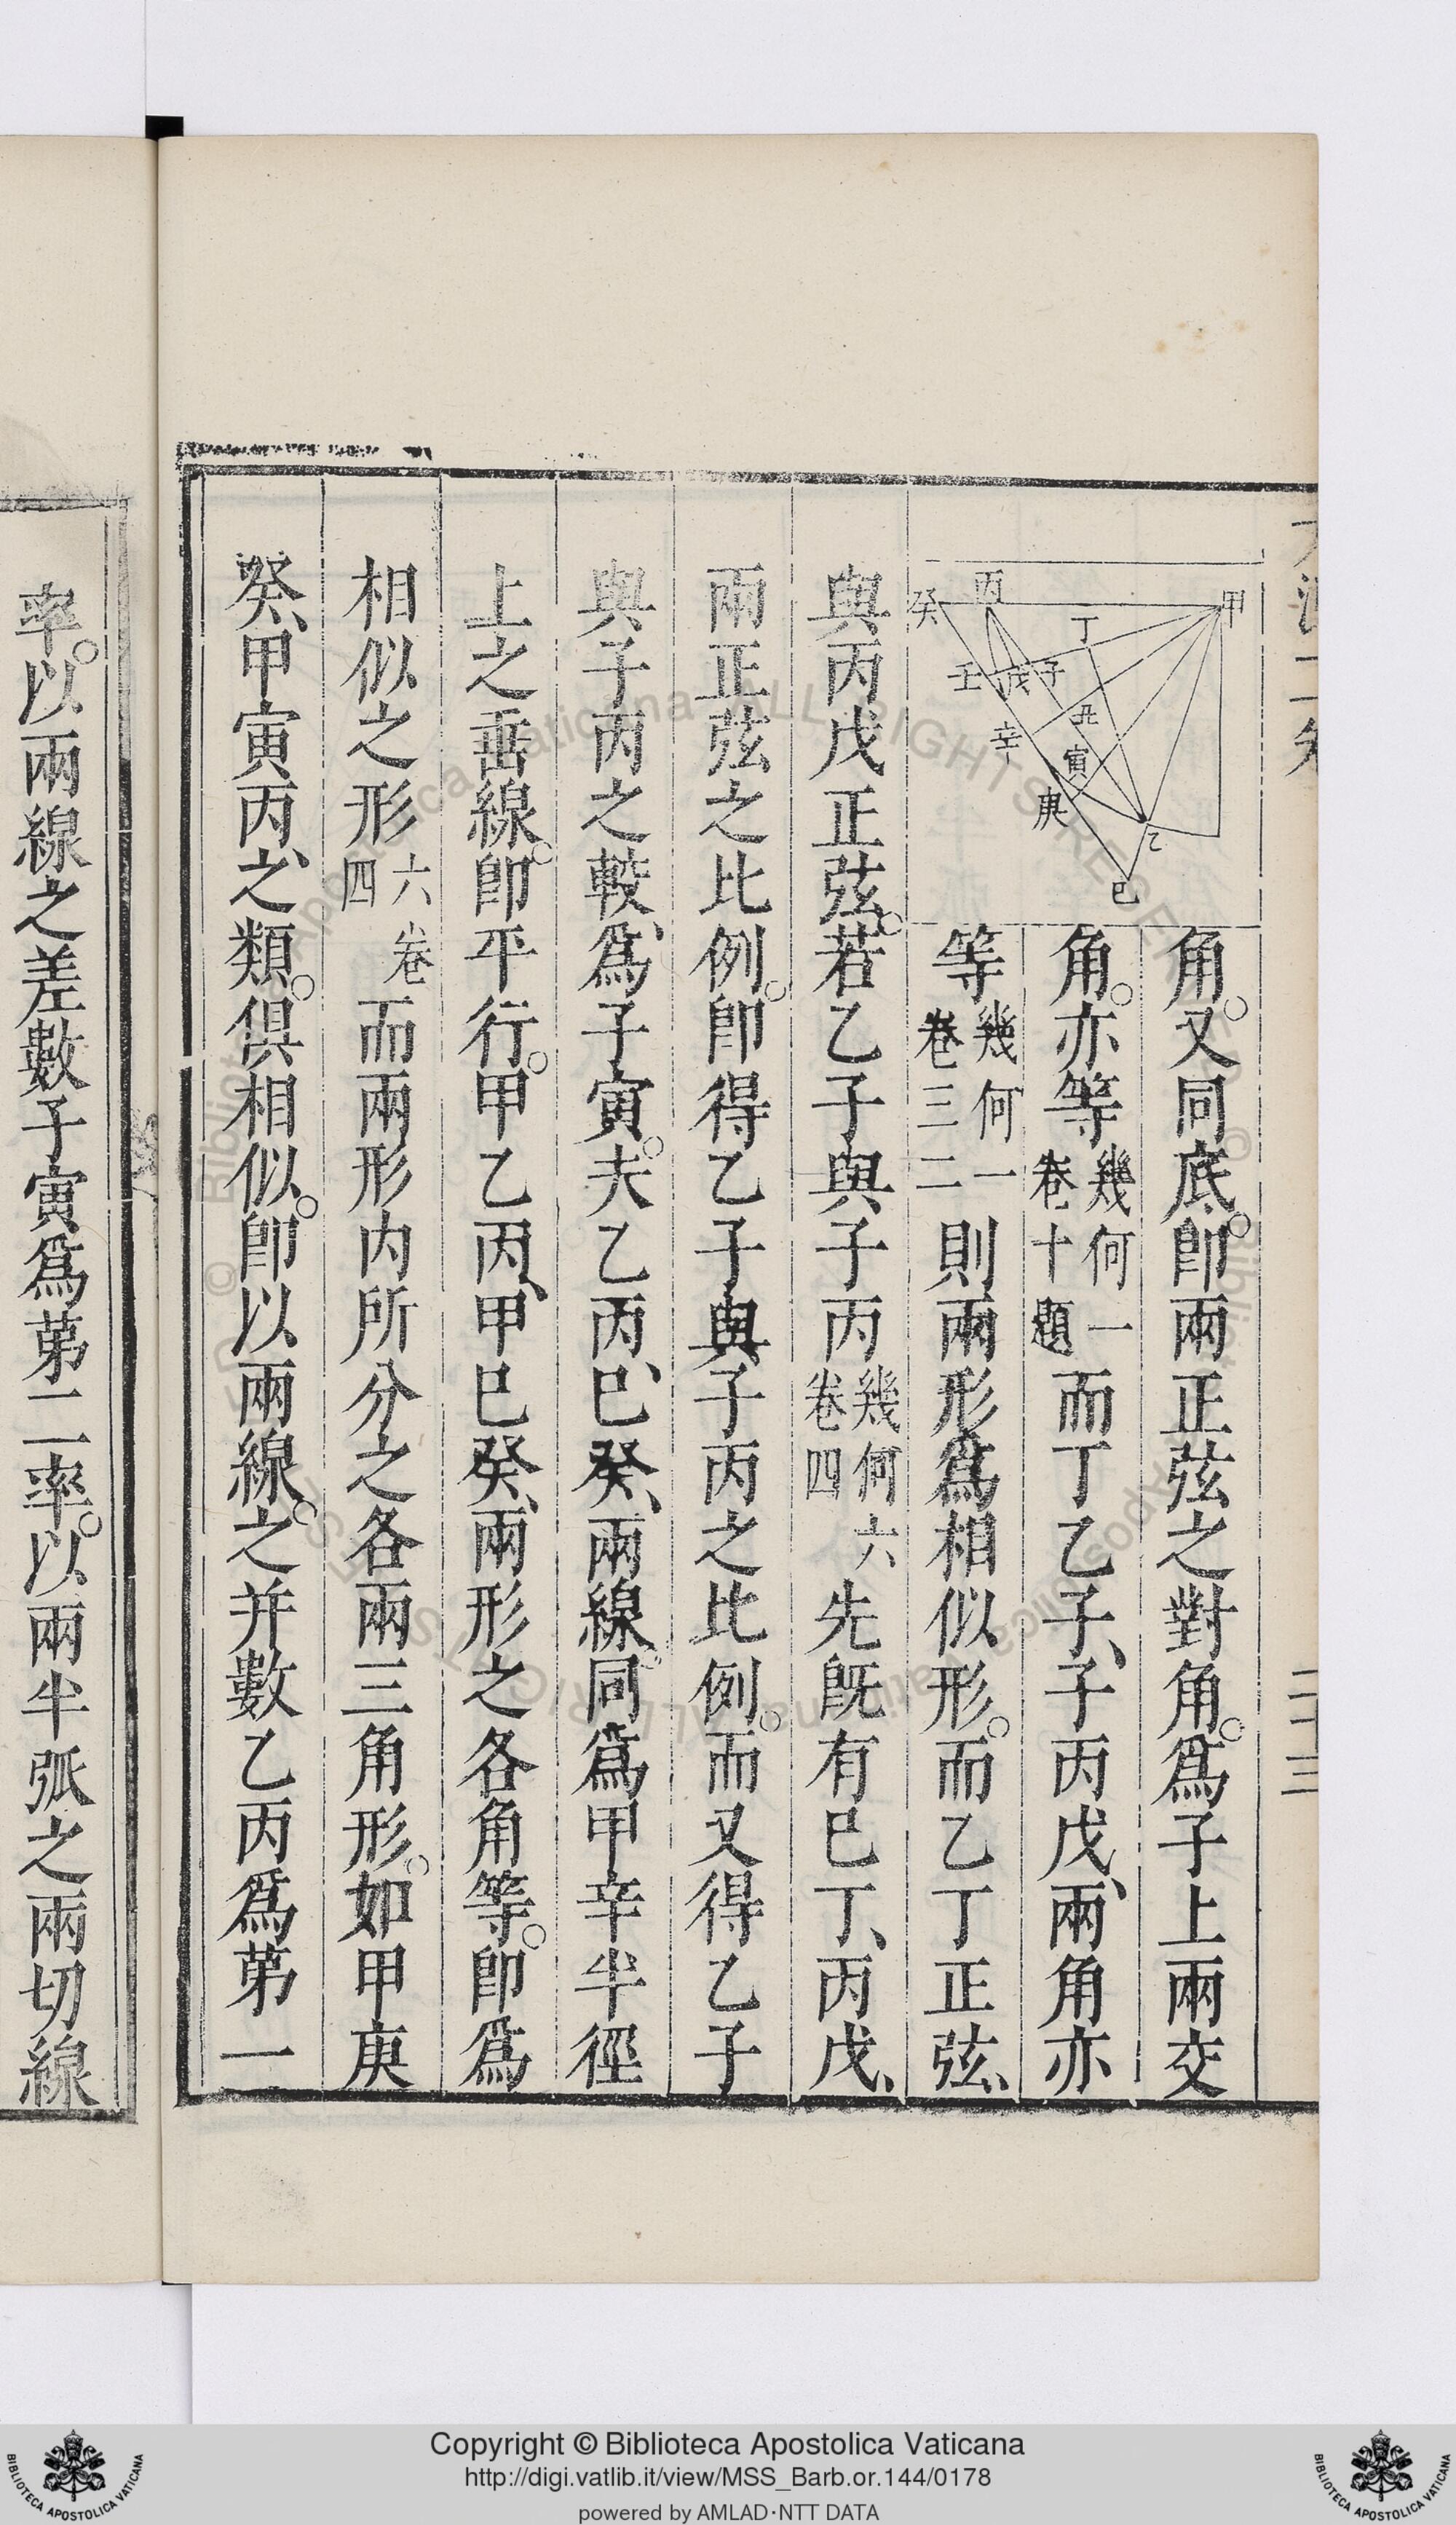 角。又同底。卽兩正弦之對角。爲子上兩交
角。亦等幾何一卷十題而丁乙子、子丙戊、兩角亦
等幾何一卷三二則兩形爲相似形。而乙丁正弦、
與丙戊正弦。若乙子與子丙幾何六卷四先旣有巳丁、丙戊、
兩正弦之比例。卽得乙子與子丙之比例。而又得乙子
與子丙之較、爲子寅。夫乙丙、巳癸、兩線。同爲甲辛半徑
上之垂線。卽平行。甲乙丙、甲巳癸、兩形之各角等。卽爲
相似之形六卷四而兩形内所分之各兩三角形。如甲庚
癸、甲寅丙、之類。俱相似。卽以兩線。之并數乙丙爲第一
率。以兩線之差數子寅爲第二率。以兩半弧之兩切線
甲
乙
丙
丁
戊
巳
庚
辛
壬
癸
子
丑
寅
二十三
Copyright © Biblioteca Apostolica Vaticana
http://digi.vatlib.it/view/MSS_Barb.or.144/0178
powered by AMLAD·NTT DATA
BIBLIOTECA APOSTOLICA VATICANA
BIBLIOTECA APOSTOLICA VATICANA